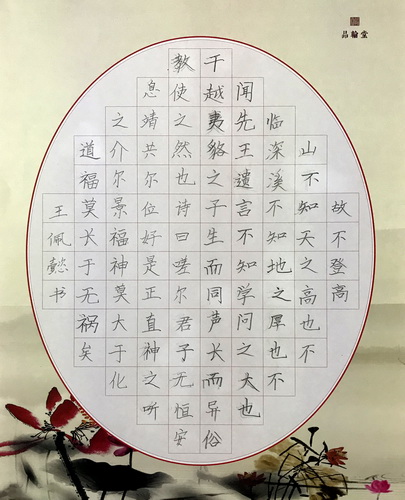 品翰堂
故不登高
山不知天之高也不
临深溪不知地之厚也不
闻先王遗言不知学问之大也
干越夷貉之子生而同声长而异俗
教使之然也诗曰嗟尔君子无恒安
息靖共尔位好是正直神之听
之介尔景福神莫大于化
道福莫长于无祸矣
王佩懿书